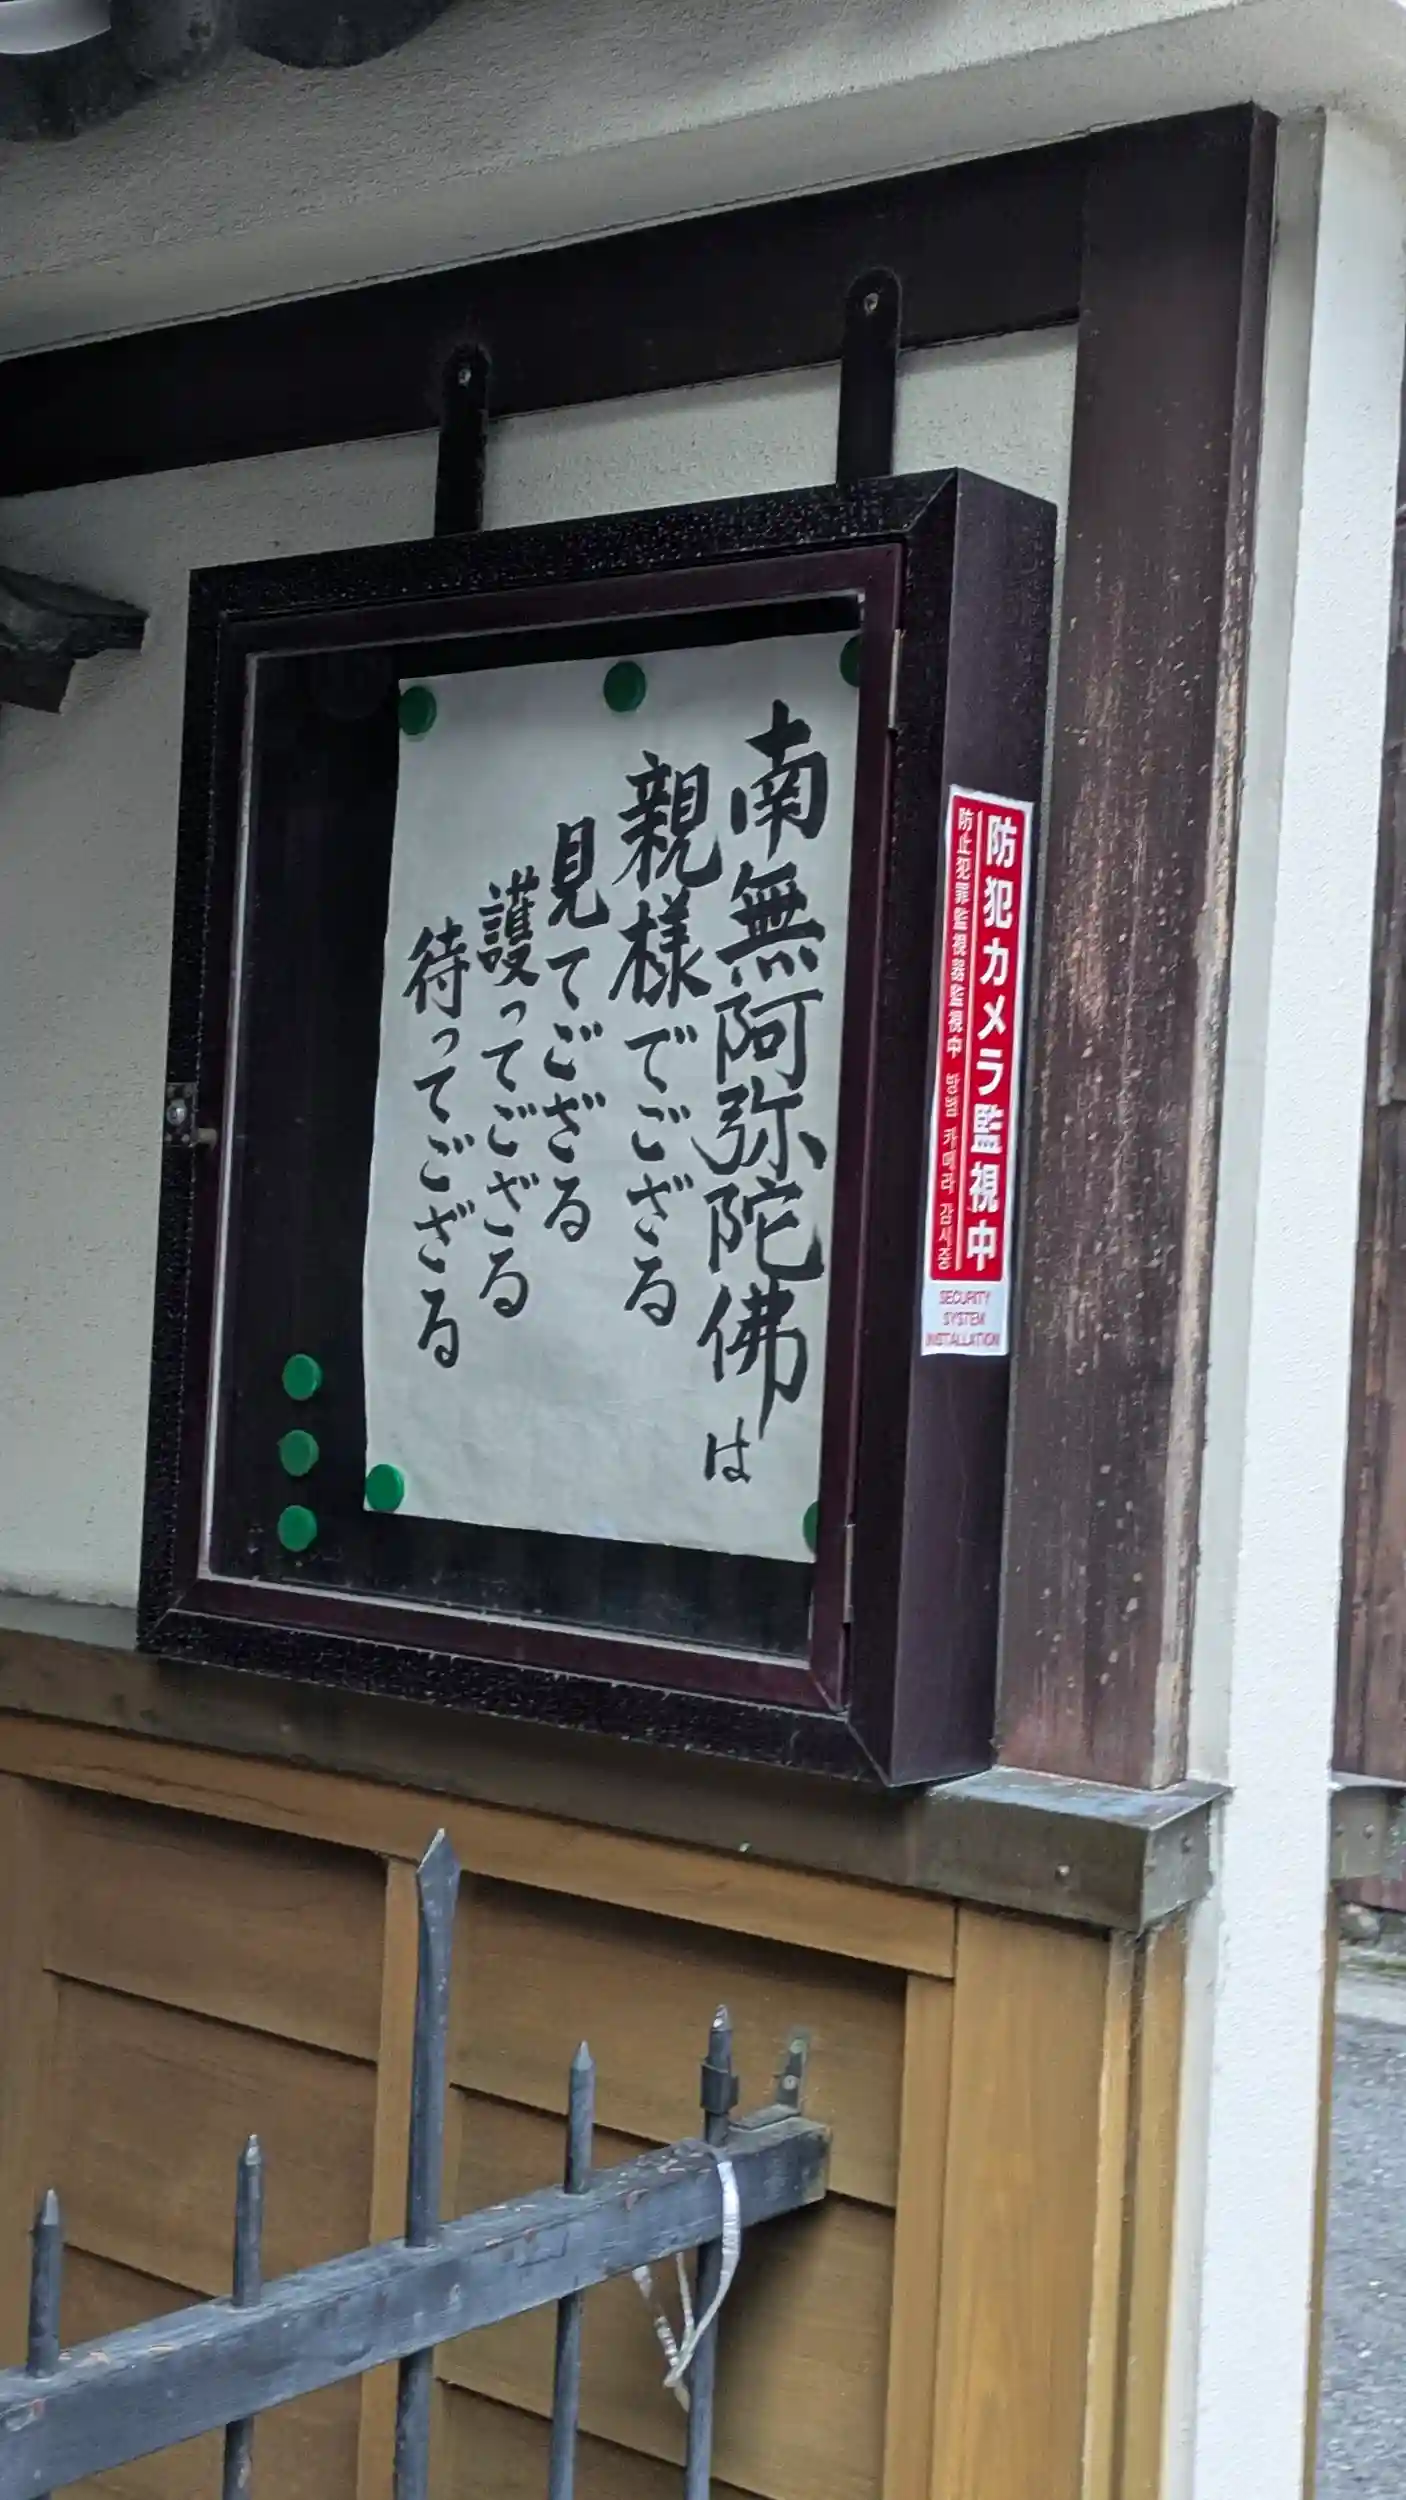 南無阿弥陀佛は
親様でござる
見てござる
護ってござる
待ってござる
防犯カメラ監視中
防止犯罪監視器監視中 방범 카메라 감시중
SECURITY
SYSTEM
INSTALLATION